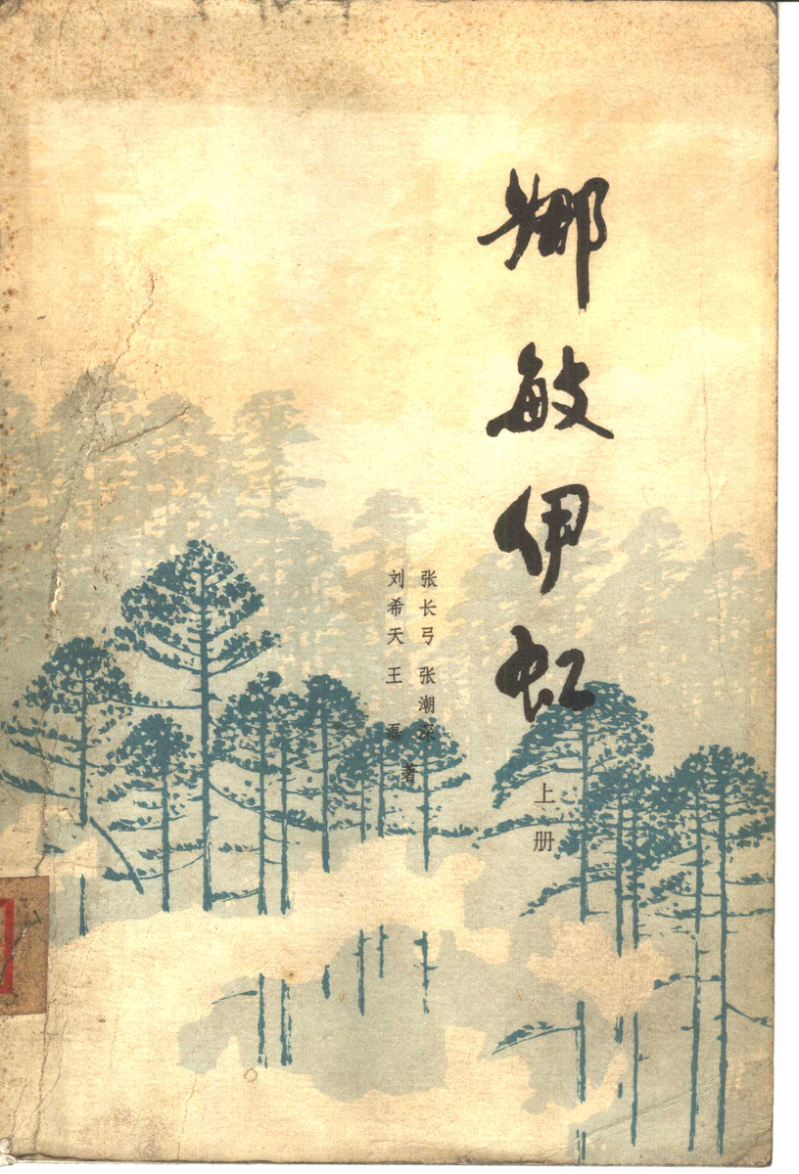 娜敏伊虹
上册
张长弓 张潮深
刘希天 王磊
著